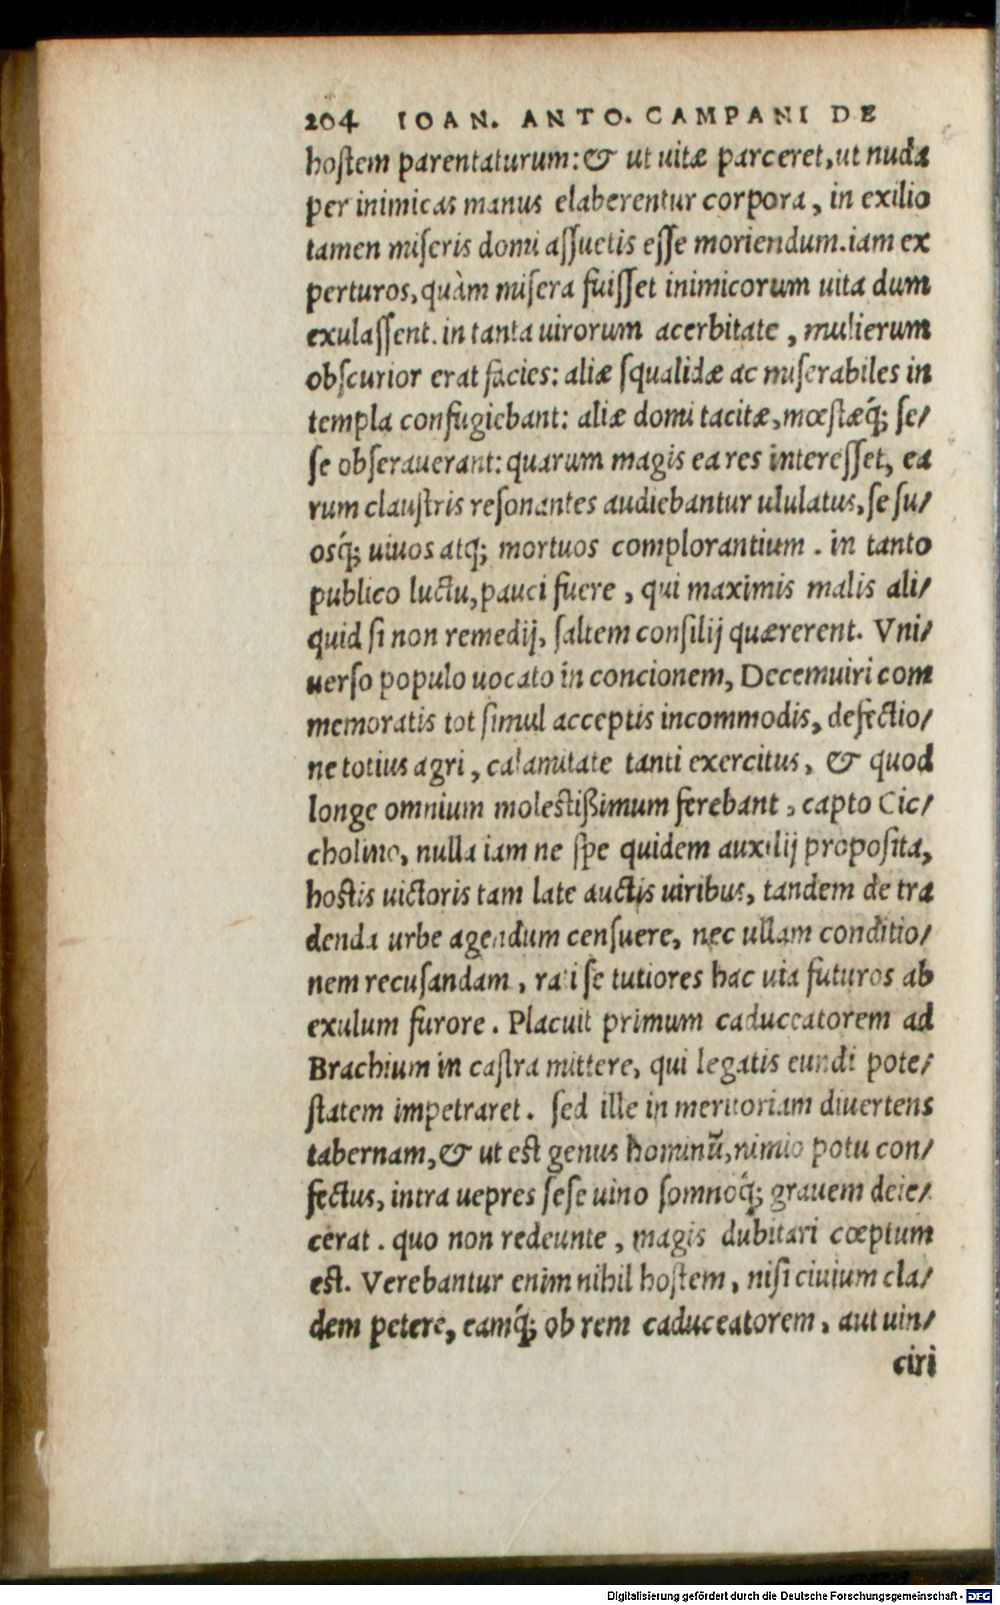 204 IOAN. ANTO. CAMPANI DE
hoſtem parentaturum: & ut uitæ parceret, ut nuda
per inimicas manus elaberentur corpora, in exilio
tamen miſeris domi aſſuetis eſſe moriendum. iam ex
perturos, quàm miſera fuiſſet inimicorum uita dum
exulaſſent. in tanta uirorum acerbitate, mulierum
obſcurior erat facies: aliæ ſqualidæ ac miſerabiles in
templa confugiebant: aliæ domi tacitæ, mœſtæq́; ſe/
ſe obſerauerant: quarum magis ea res intereſſet, ea
rum clauſtris reſonantes audiebantur ululatus, ſe ſu/
osq́; uiuos atq; mortuos complorantium. in tanto
publico luctu, pauci fuere, qui maximis malis ali/
quid ſi non remedij, ſaltem conſilij quærerent. Vni/
uerſo populo uocato in concionem, Decemuiri com
memoratis tot ſimul acceptis incommodis, defectio/
ne totius agri, calamitate tanti exercitus, & quod
longe omnium moleſtißimum ferebant, capto Cic/
cholino, nulla iam ne ſpe quidem auxilij propoſita,
hoſtis uictoris tam late auctis uiribus, tandem de tra
denda urbe agendum cenſuere, nec ullam conditio/
nem recuſandam, rati ſe tutiores hac uia futuros ab
exulum furore. Placuit primum caduceatorem ad
Brachium in caſtra mittere, qui legatis eundi pote/
ſtatem impetraret. ſed ille in meritoriam diuertens
tabernam, & ut eſt genus hominũ, nimio potu con/
fectus, intra uepres ſeſe uino ſomnoq́; grauem deie/
cerat. quo non redeunte, magis dubitari cœptum
eſt. Verebantur enim nihil hoſtem, niſi ciuium cla/
dem petere, eamq́; ob rem caduceatorem, aut uin/
ciri
Digitalisierung gefördert durch die Deutsche Forschungsgemeinschaft - DFG